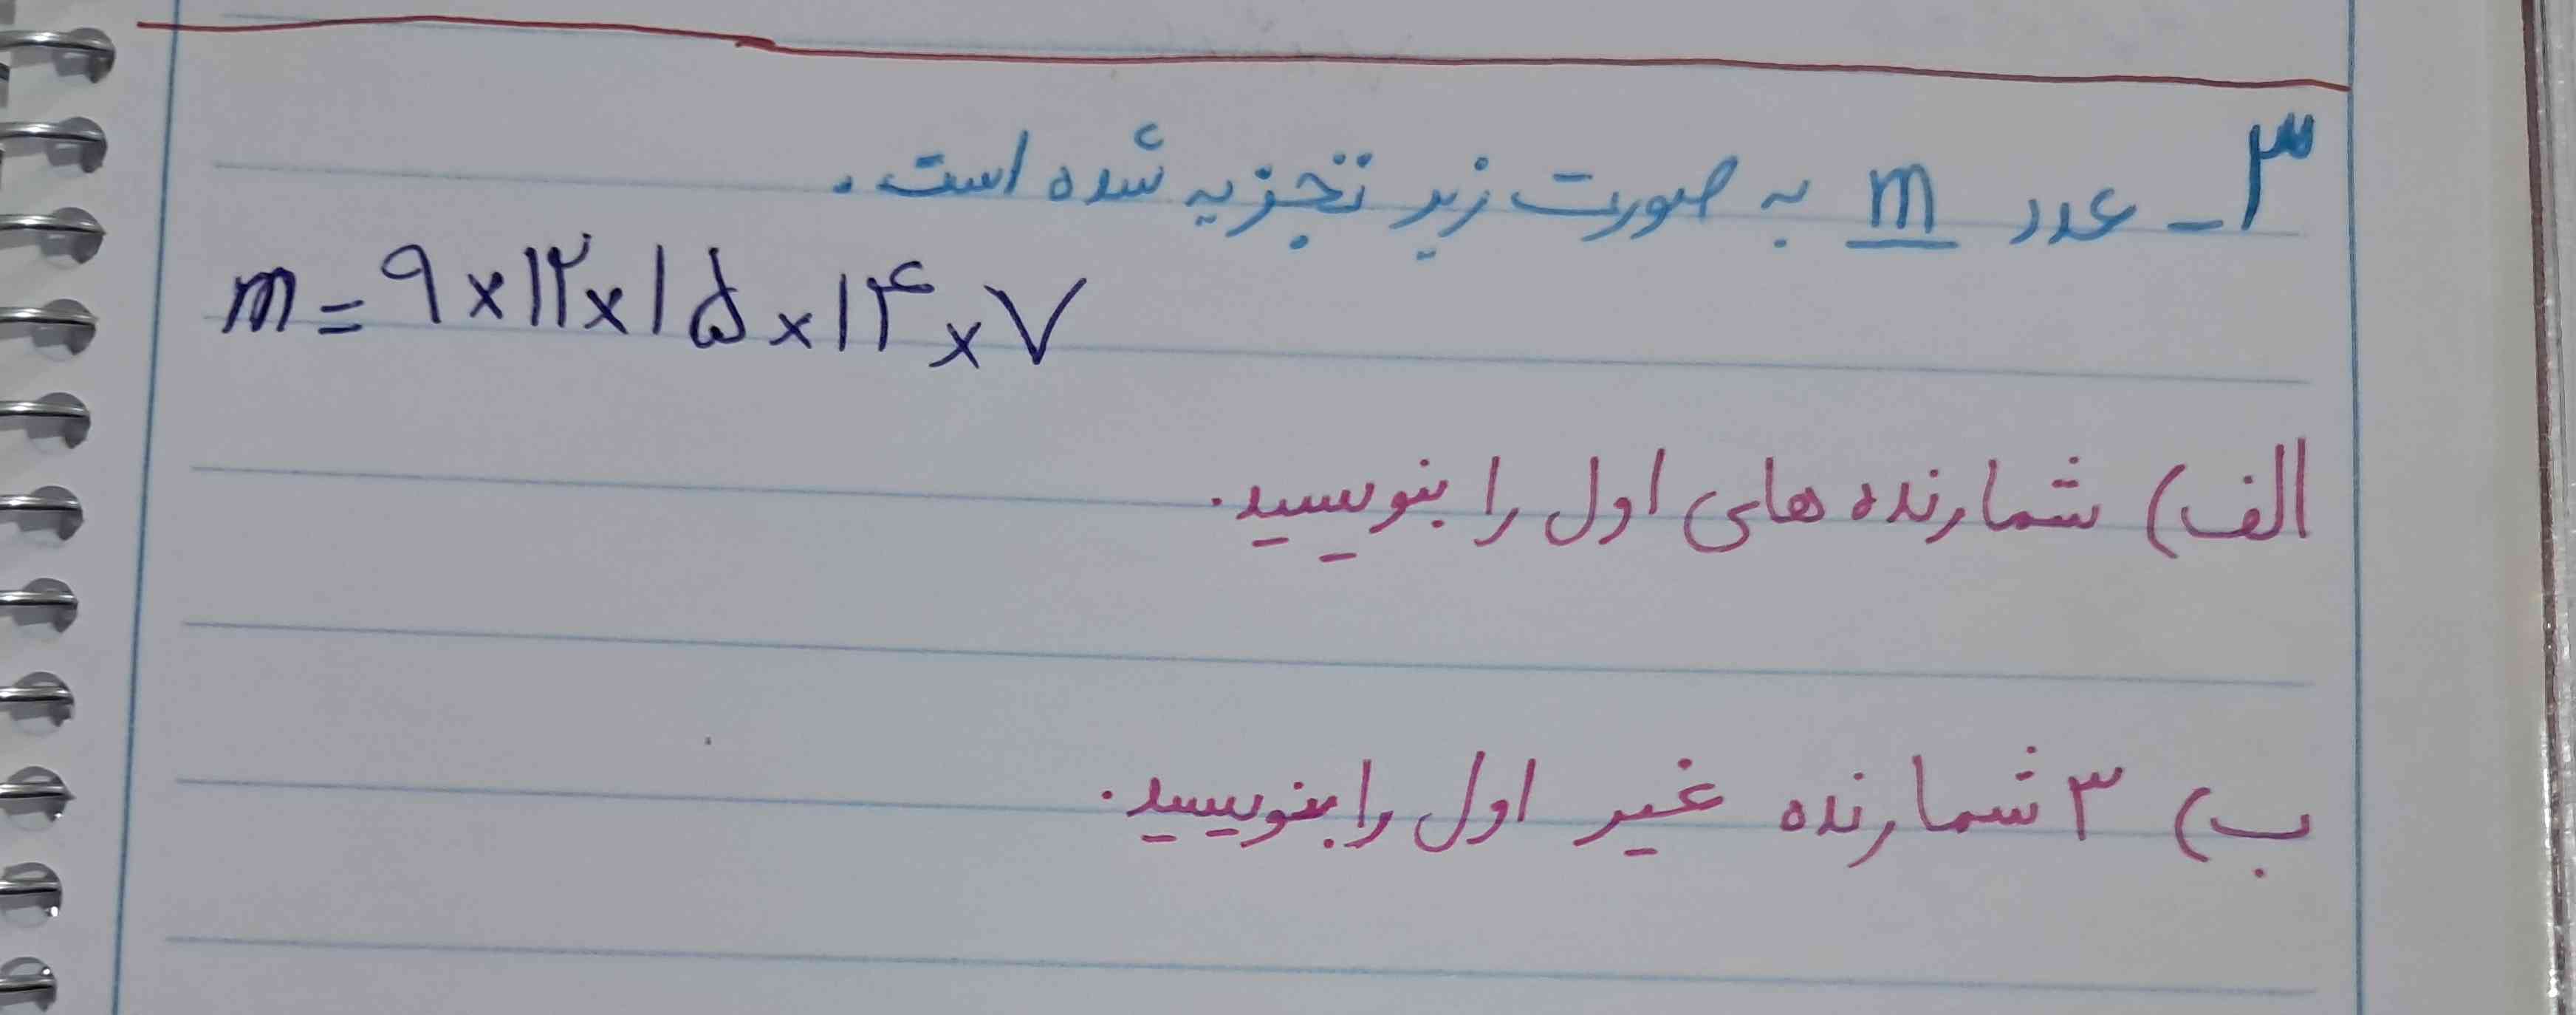 ۳- عدد m به صورت زیر تجزیه شده است.
m = ۹×۱۲×۱۵×۱۴×۷
الف) شمارنده های اول را بنویسید.
ب) ۳ شمارنده غیر اول را بنویسید.